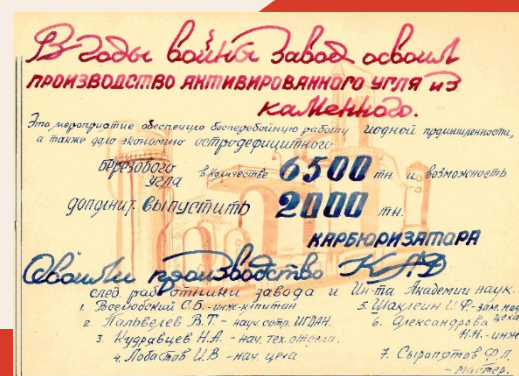 В годы войны завод освоил
ПРОИЗВОДСТВО АКТИВИРОВАННОГО УГЛЯ ИЗ
каменного.
Это мероприятие обеспечило бесперебойную работу иодной промышленности,
а также дало экономию остродефицитного
березового
угля
в количестве 6500 тн. и возможность
дополнит. выпустить 2000 тн.
КАРБЮРИЗАТОРА
Освоили производство КАД
след. работники завода и Ин-та Академии наук.
1. С.Б. - инж-капитан
2. В.Т. - науч. сотр. ИГДАН.
3. Кудравцев Н.А. - нач. тех. отдела.
4. Лобастов И.В - нач. цеха
5. Шаклеин И.Ф - зам. нач.
цеха
6. Александрова
Н.Н. - инж
7. Сыропятов Ф.П.
- мастер.